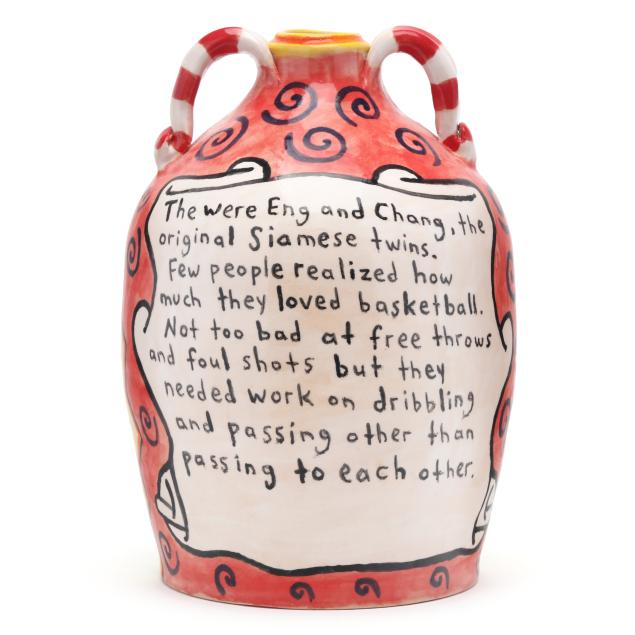 The were Eng and Chang, the
original Siamese twins.
Few people realized how
much they loved basketball.
Not too bad at free throws
and foul shots but they
needed work on dribbling
and passing other than
passing to each other.